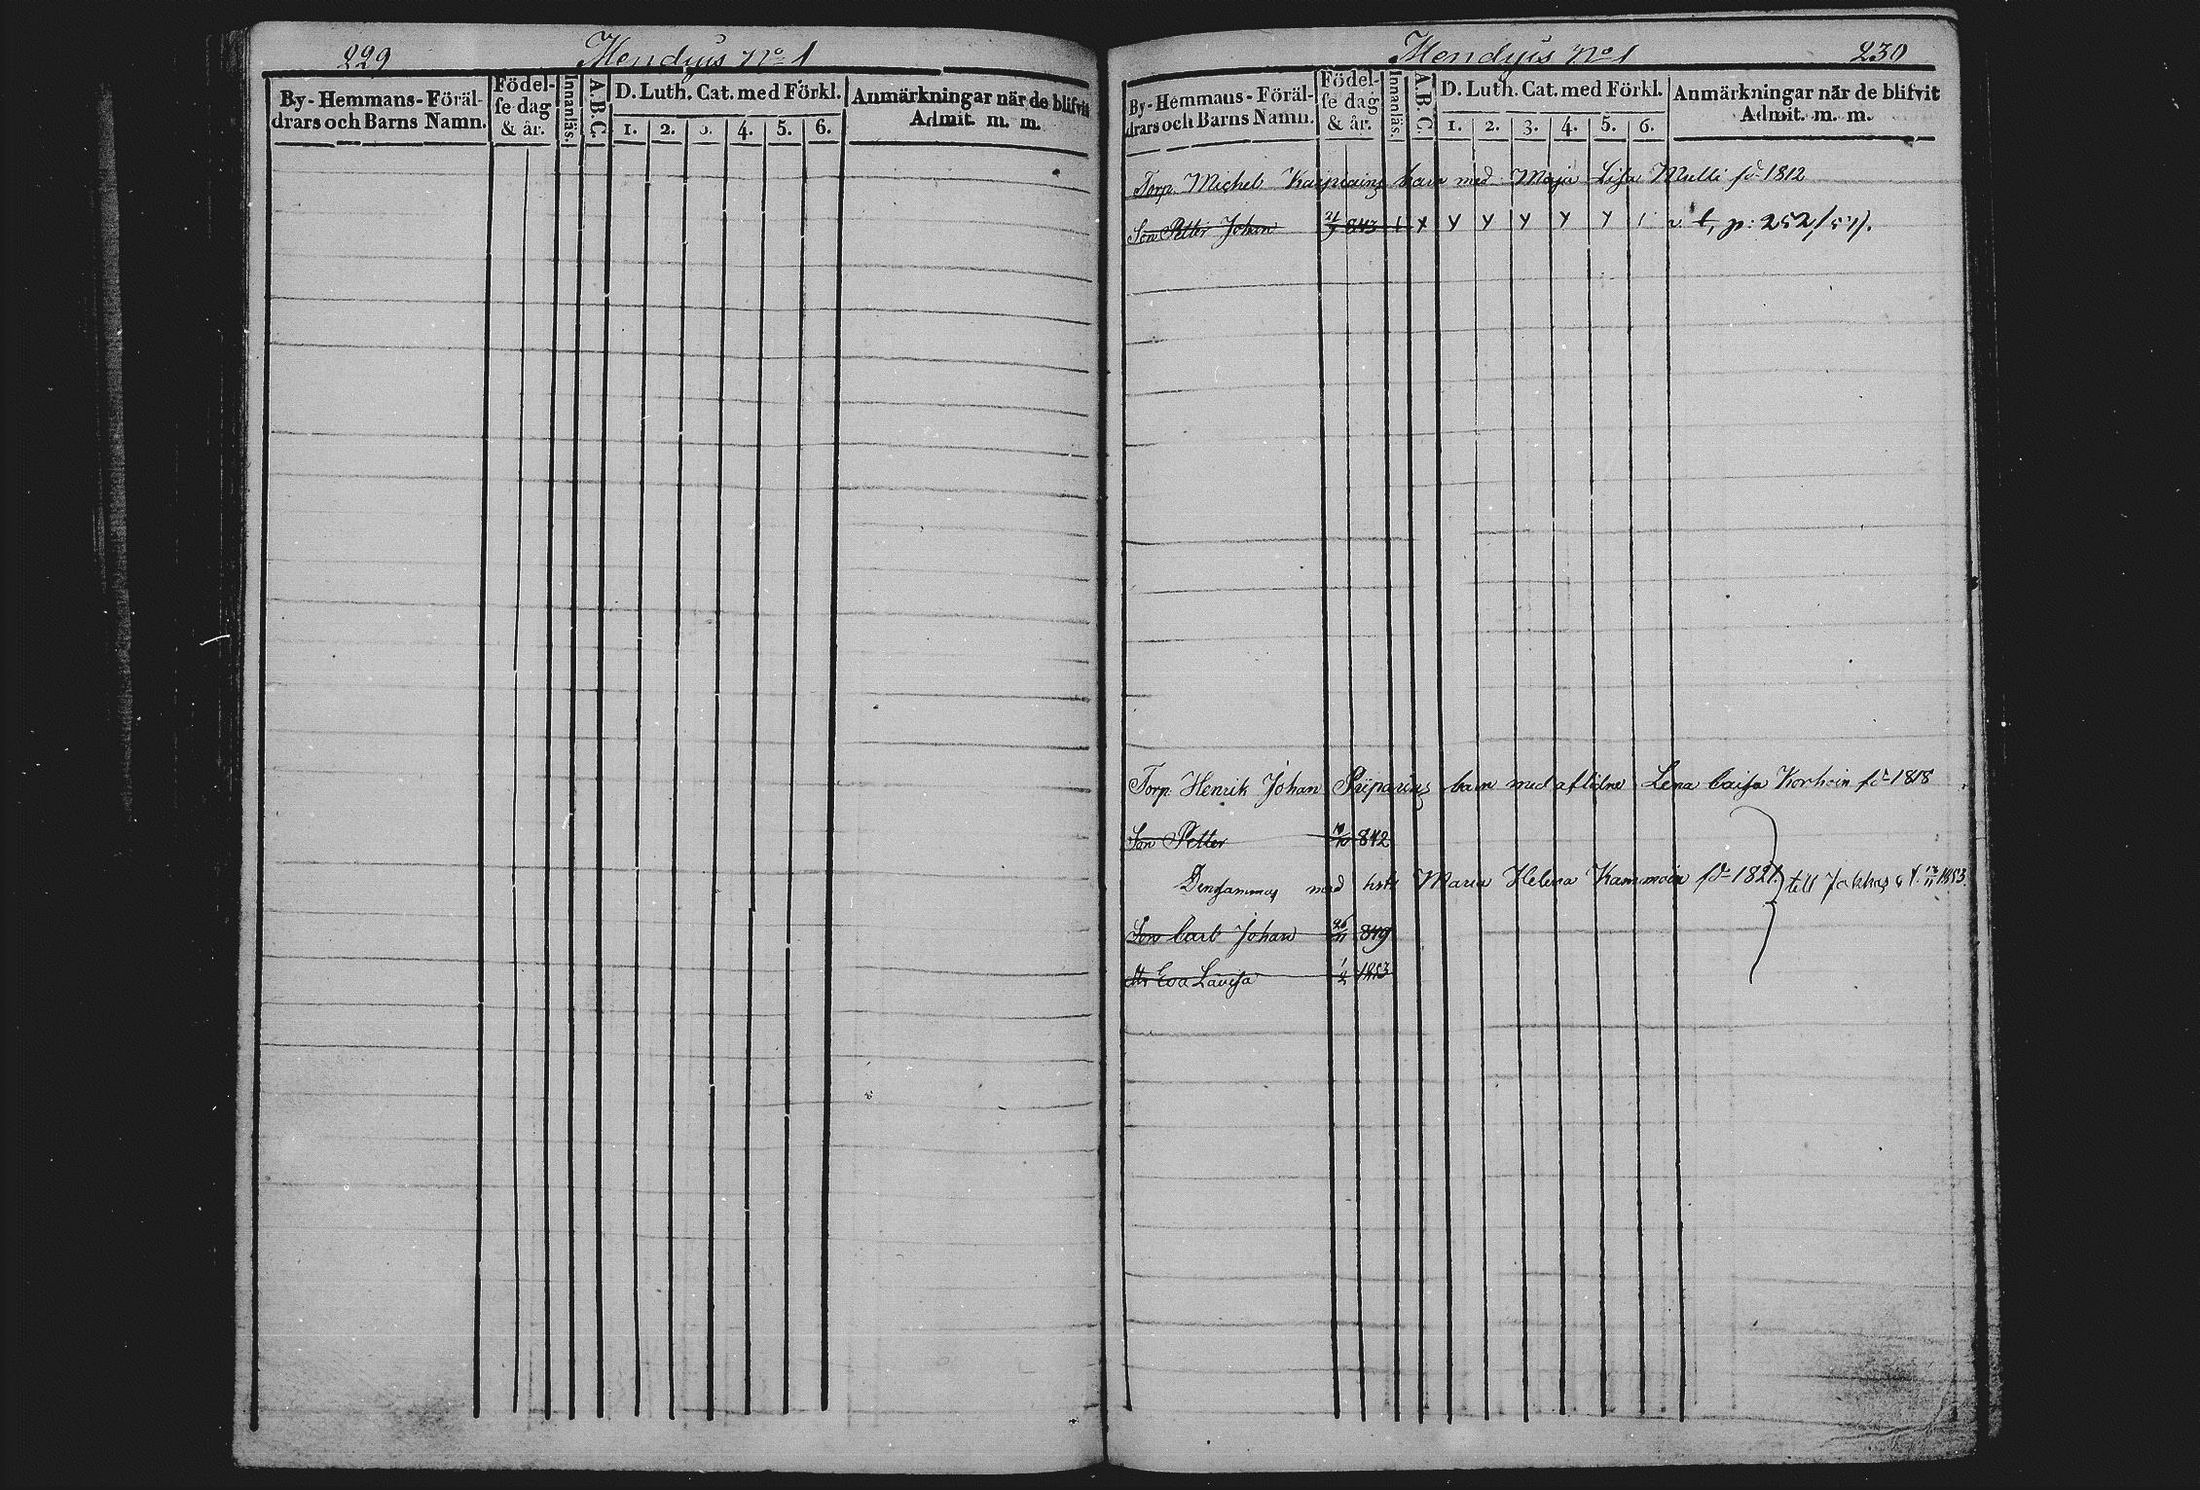 229 Mendyis No 1
By-Hemmans-Föräl-
drars och Barns Namn.
Födel-
se dag
& år.
Innanläs.
A.B.C.
D. Luth. Cat. med Förkl.
1. 2. 3. 4. 5. 6.
Anmärkningar när de blifvit
Admit. m. m.
Mendyis No 1 230
By-Hemmans-Föräl-
drars och Barns Namn.
Födel-
se dag
& år.
Innanläs.
A.B.C.
D. Luth. Cat. med Förkl.
1. 2. 3. 4. 5. 6.
Anmärkningar när de blifvit
Admit. m. m.
Torp. Michel barn med Maja Lisa Mulli 1812
Son Petter Johan 843 p. 252
Torp. Henrik Johan barn med aflidne Lena Caisa 1818
Son Petter 842
Densammas med Maria Helena 1821 till Jakkas 1853
Son Carl Johan 849
Eva Lovisa 1/2 1853